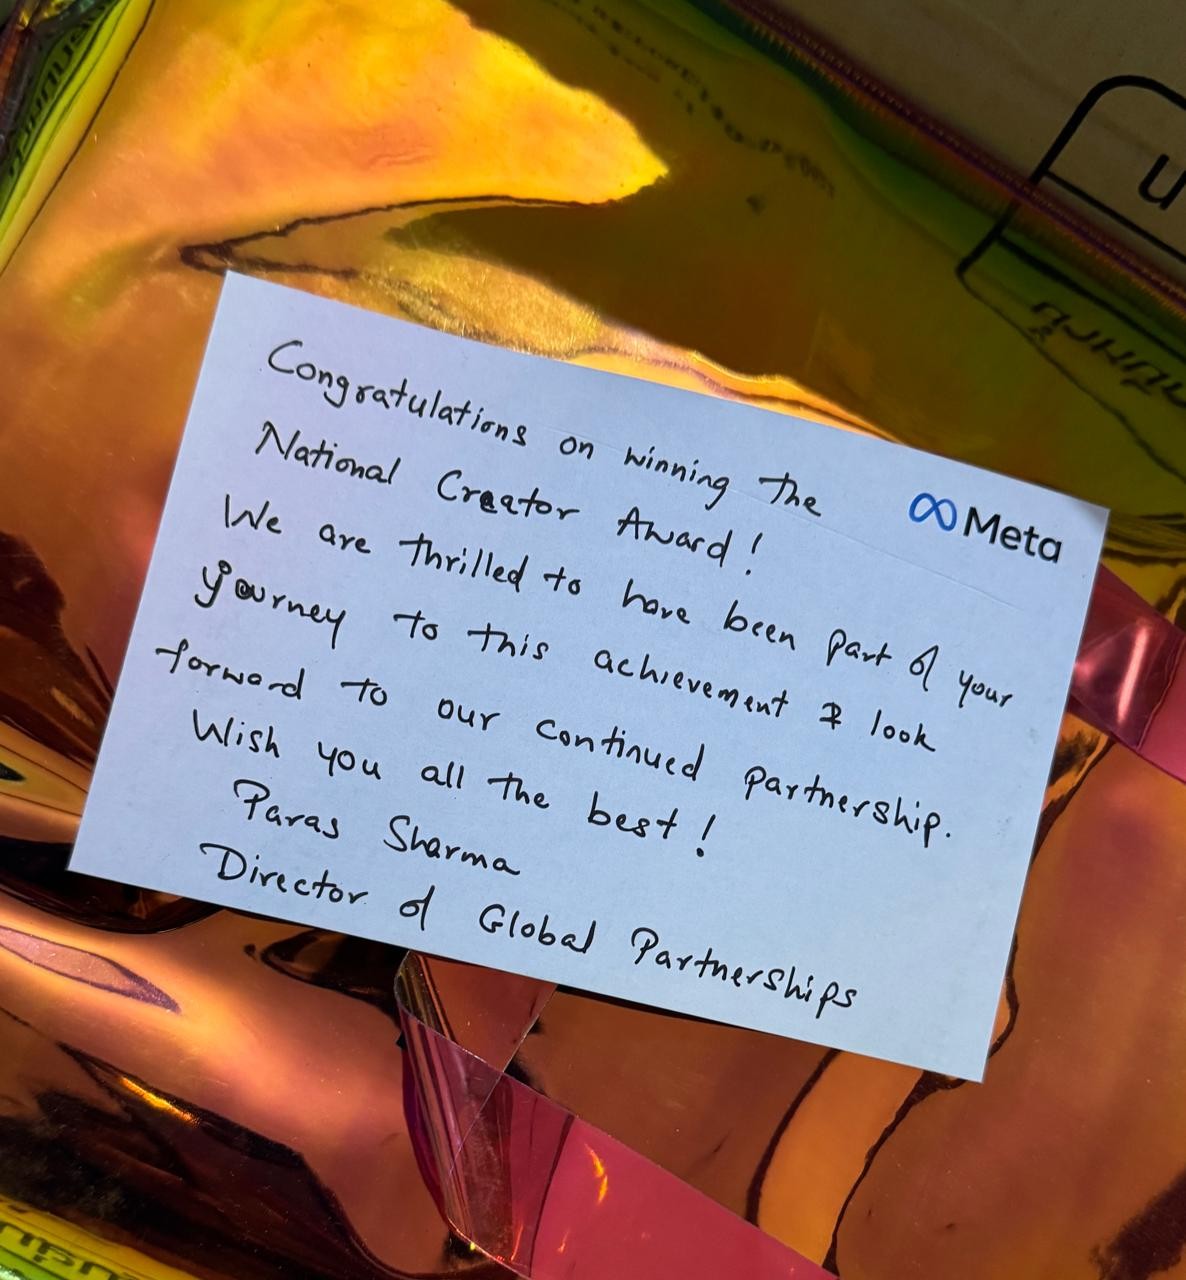 Congratulations on winning the
National Creator Award!
We are thrilled to have been part of your
journey to this achievement & look
forward to our continued partnership.
Wish you all the best!
Paras Sharma
Director of Global Partnerships
Meta